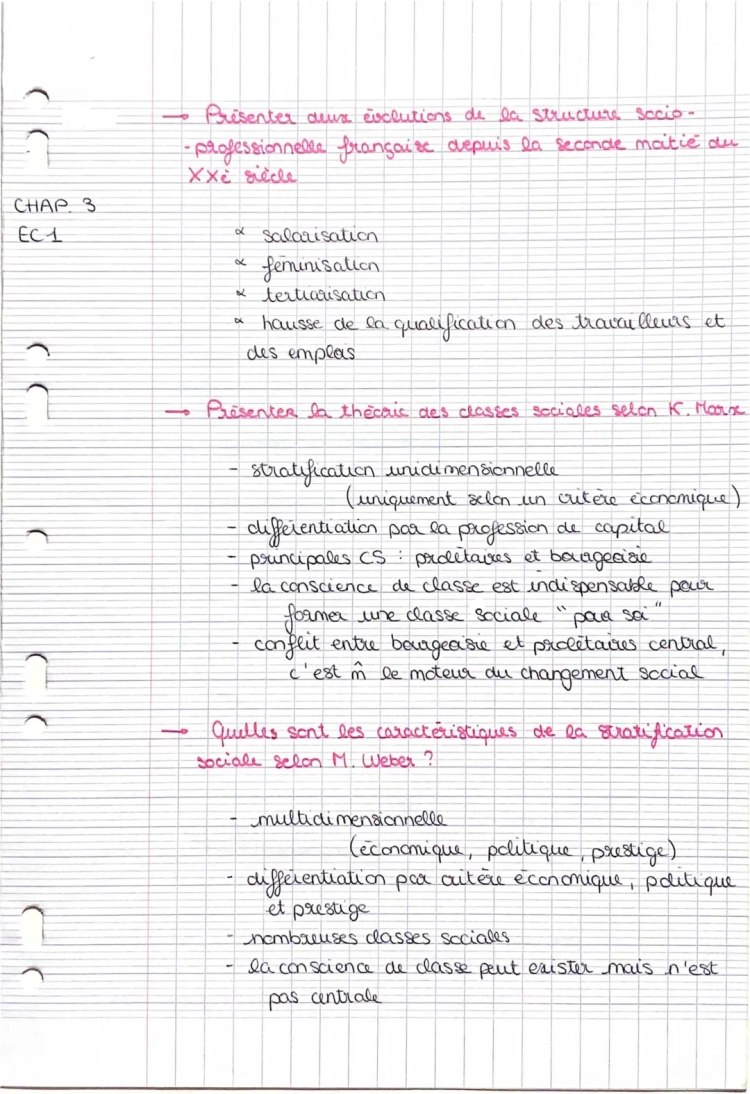 → Présenter deux évolutions de la structure socio-
-professionnelle française depuis la seconde moitié du
XXè siècle
CHAP. 3
EC1
∝ salarisation
∝ féminisation
∝ tertiarisation
∝ hausse de la qualification des travailleurs et
des emplois
→ Présenter la théorie des classes sociales selon K. Marx
- stratification unidimensionnelle
(uniquement selon un critère économique)
- différentiation par la profession de capital
- principales CS : prolétaires et bourgeoisie
- la conscience de classe est indispensable pour
former une classe sociale "pour soi"
- conflit entre bourgeoisie et prolétaires central,
c'est m̂ le moteur du changement social
→ Quelles sont les caractéristiques de la stratification
sociale selon M. Weber ?
- multidimensionnelle
(économique, politique, prestige)
- différentiation par critère économique, politique
et prestige
- nombreuses classes sociales
- la conscience de classe peut exister mais n'est
pas centrale